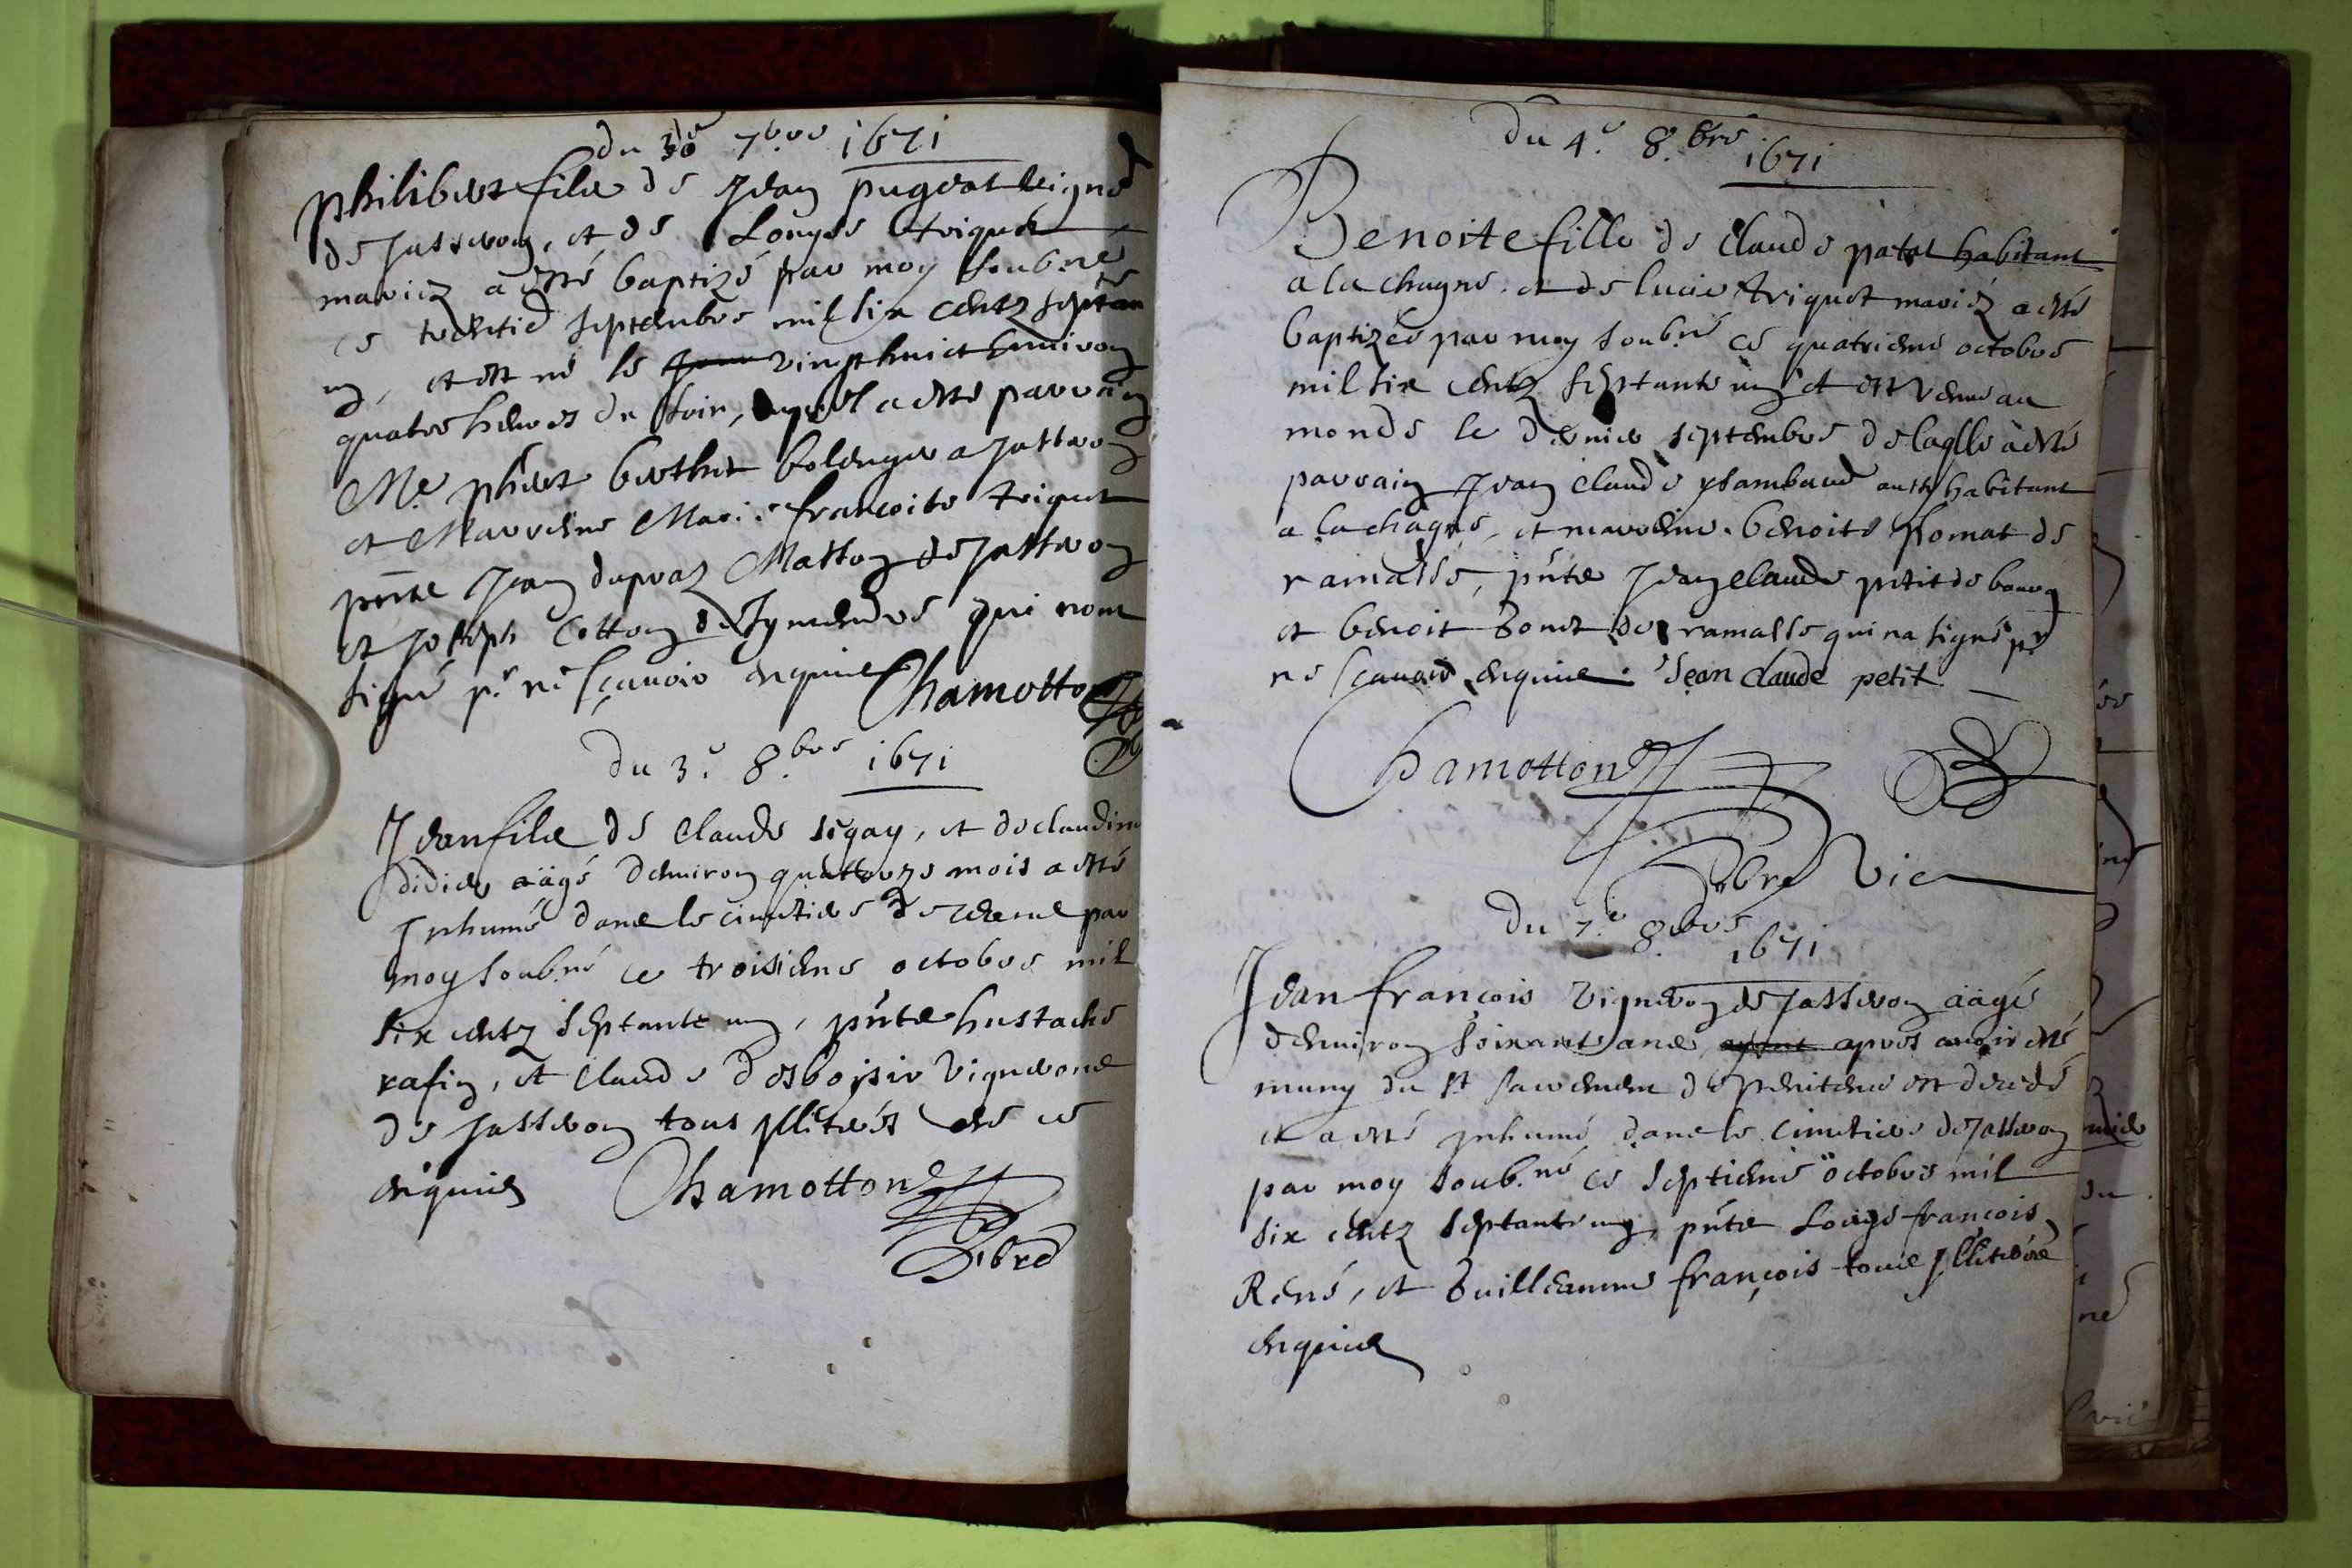 du 30e 7bre 1671
philibert filz de Jean pugeat vigner
de Jasseron, et de Louyse triquet
mariez a esté baptizé par moy soub.né
ce trentie septembre mil six centz septan
un, et est né le vingthuict environ
quatre heures du soir, duquel a esté parrain
Me. phibert berthet bolenger a Jasseron
et Marreine Marie francoise triquet
pnte Jean dupraz Masson de Jasseron
et Joseph Cotton de qui nont
signé pr ne sçavoir enquis Chamotton
du 3e 8bre 1671
Jean filz de Claude segay, et de claudine
didier aagé denviron quattorze mois a esté
Inhumé dans le cimetiere de par
moy soub.né ce troisieme octobre mil
six centz septante un, pnte hustache
rafin, et Claude desboisir vignerons
de Jasseron tous illiterés de ce
enquis Chamotton
pbre
du 4e. 8.bre
1671
Benoite fille de Claude patet habitant
a la chagne. et de lucie triquet mariéz a esté
baptizée par moy soub.né ce quatrieme octobre
mil six centz septante un et est venue au
monde le dernier septembre de laqlle a esté
parrain Jean Claude habitant
a la chagne, et marreine. benoite de
ramasse, pnte Jean Claude petit de bourg
et benoit de ramasse qui na signé pr
ne sçavoir enquis. Jean Claude petit
Chamotton
pbre Vic
du 7.e 8.bre
1671
Jean françois vigneron de Jasseron aagé
denviron soixante ans, ayant apres avoir esté
muny du st sacrement de penitence est decedé
et a esté inhumé dans le cimetiere de Jasseron
par moy soub.né ce septieme octobre mil
six centz septante un, pnte Louys françois
René, et Guilleaume françois tous illiterés
enquis